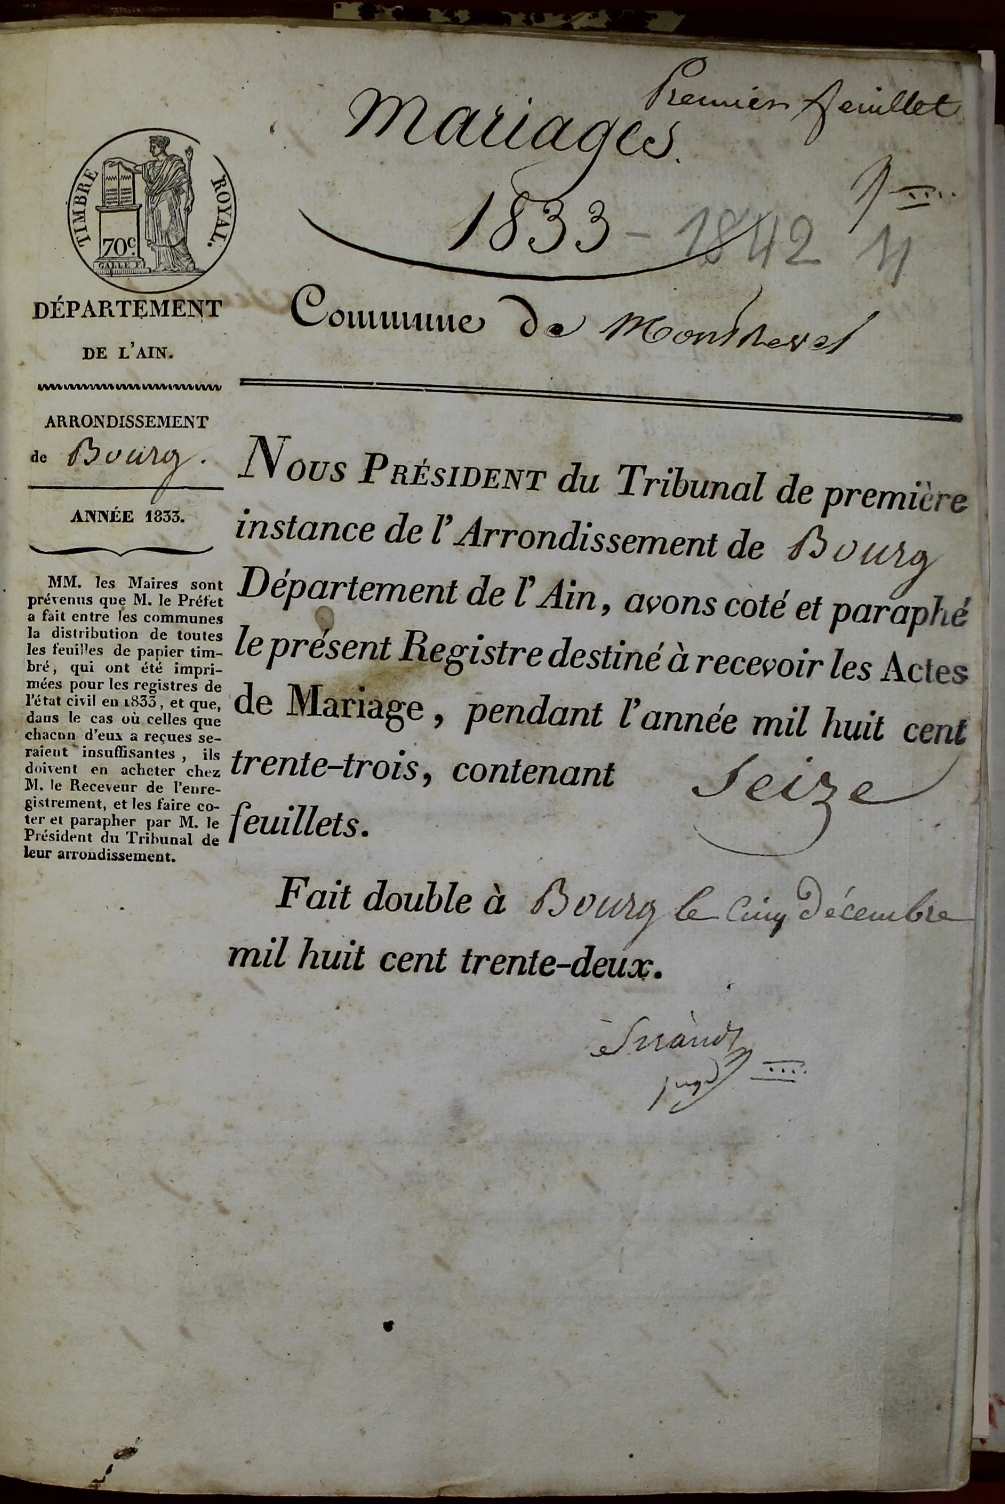 Premier feuillet
Mariages.
1833 - 1842
Commune de Montrevel
TIMBRE ROYAL.
70c
DÉPARTEMENT
DE L'AIN.
ARRONDISSEMENT
de Bourg.
ANNÉE 1833.
MM. les Maires sont
prévenus que M. le Préfet
a fait entre les communes
la distribution de toutes
les feuilles de papier tim-
bré, qui ont été impri-
mées pour les registres de
l'état civil en 1833, et que,
dans le cas où celles que
chacun d'eux a reçues se-
raient insuffisantes, ils
doivent en acheter chez
M. le Receveur de l'enre-
gistrement, et les faire co-
ter et parapher par M. le
Président du Tribunal de
leur arrondissement.
NOUS PRÉSIDENT du Tribunal de première
instance de l'Arrondissement de Bourg
Département de l'Ain, avons coté et paraphé
le présent Registre destiné à recevoir les Actes
de Mariage, pendant l'année mil huit cent
trente-trois, contenant Seize
feuillets.
Fait double à Bourg le cinq Décembre
mil huit cent trente-deux.
juge